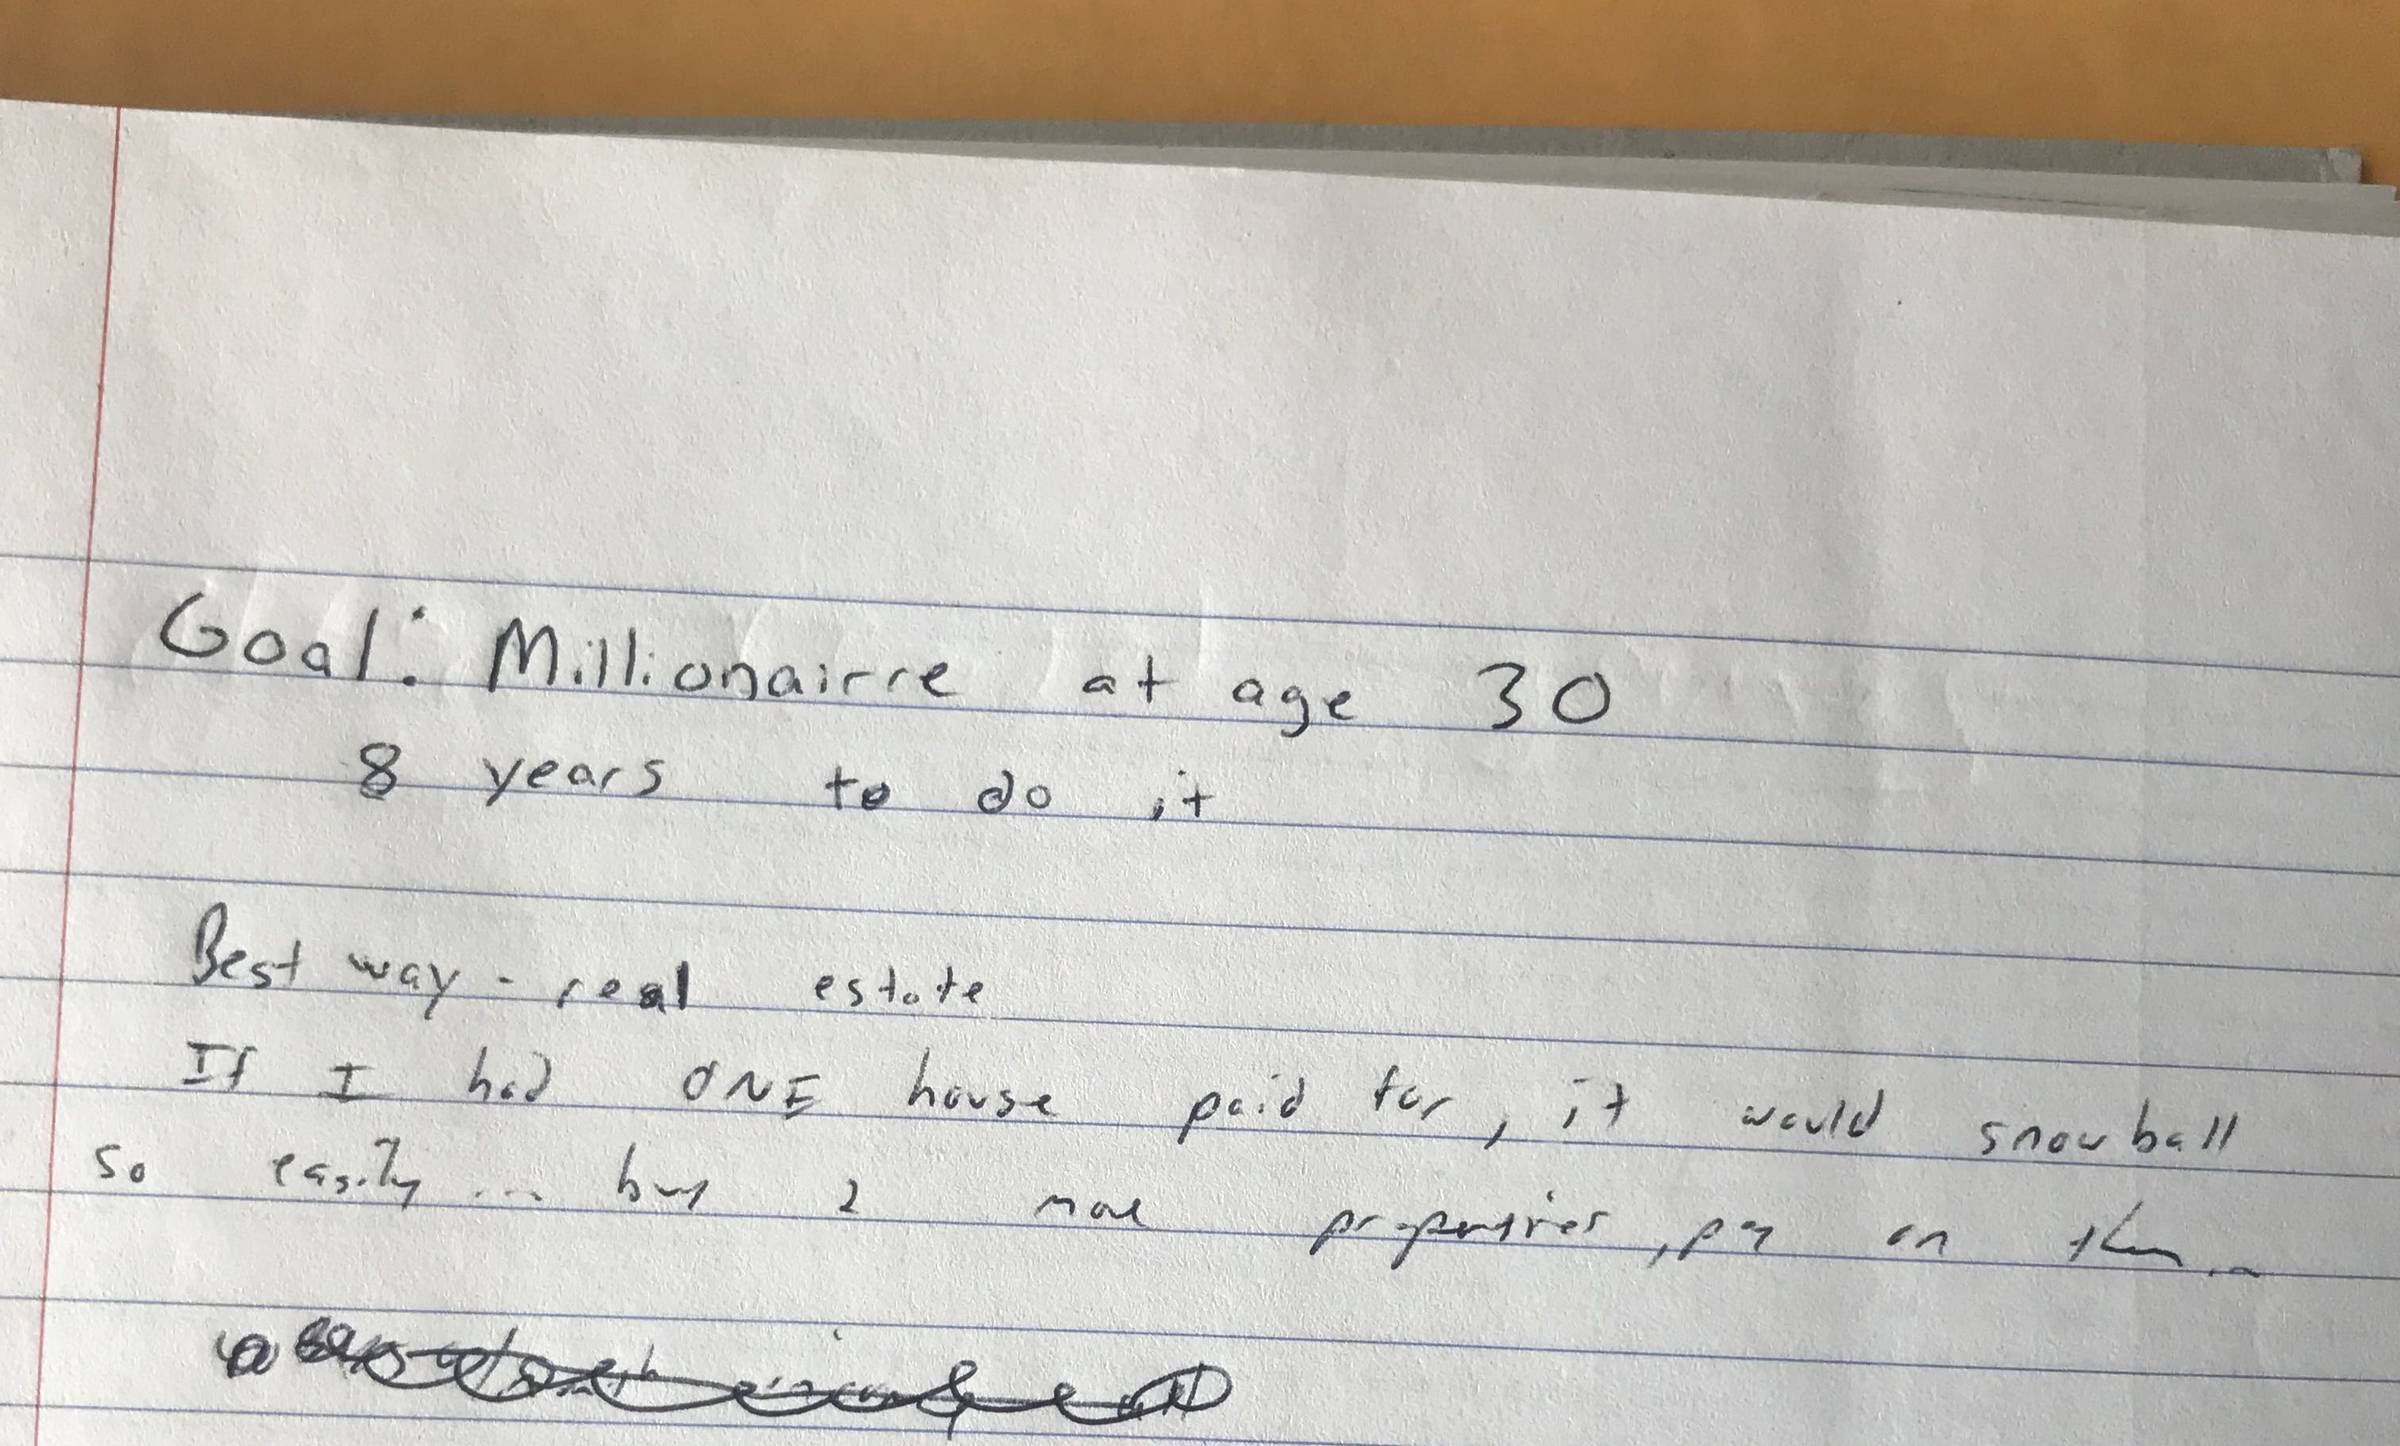 Goal: Millionairre at age 30
8 years to do it
Best way - real estate
If I had ONE house paid for, it would snowball
so easily ... buy 2 more properties, pay on them...